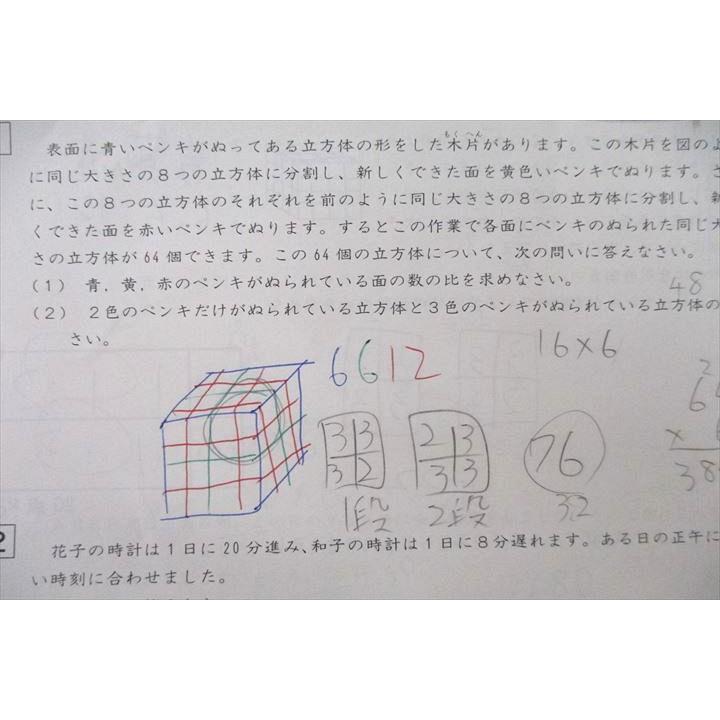 もくへん
表面に青いペンキがぬってある立方体の形をした木片があります。この木片を図のよ
に同じ大きさの8つの立方体に分割し、新しくできた面を黄色いペンキでぬります。さ
に、この8つの立方体のそれぞれを前のように同じ大きさの8つの立方体に分割し、新
くできた面を赤いペンキでぬります。するとこの作業で各面にペンキのぬられた同じ大
さの立方体が64個できます。この64個の立方体について、次の問いに答えなさい。
(1) 青，黄，赤のペンキがぬられている面の数の比を求めなさい。
48
(2) 2色のペンキだけがぬられている立方体と3色のペンキがぬられている立方体の
さい。
16×6
6 6 12
3 3 2 3
3 2 3 3
76
× 6
38
1段 2段 32
2
花子の時計は1日に20分進み、和子の時計は1日に8分遅れます。ある日の正午に
い時刻に合わせました。